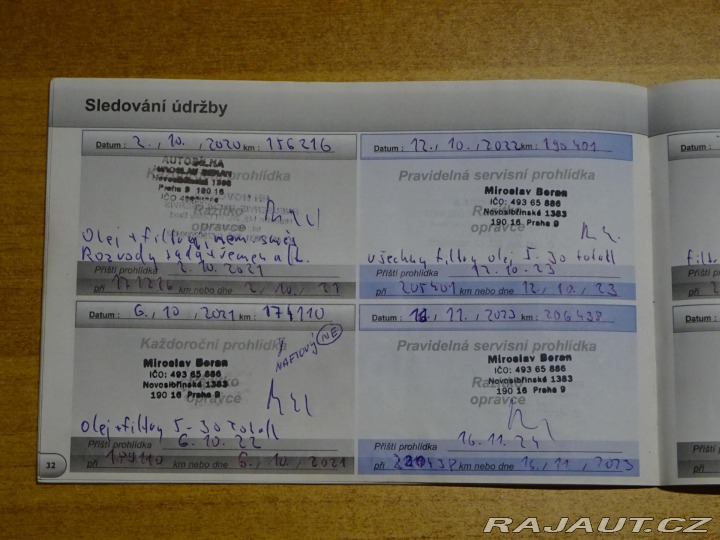 Sledování údržby
Datum : 2., 10. , 2020 km : 156216
Každoroční prohlídka
AUTODÍLNA
MIROSLAV BERAN
Novosibřinská 1383
Praha 9 190 16
IČO
Razítko
opravce
Olej + filtry,
Rozvody sada + řemen alt.
Příští prohlídka 2.10.2021
při km nebo dne 2., 10., 21
Datum : 12. , 10. , 2022 km : 190401
Pravidelná servisní prohlídka
Miroslav Beran
IČO: 493 65 886
Novosibřinská 1383
190 16 Praha 9
Razítko
opravce
všechny filtry olej 5-30 total
Příští prohlídka 12.10.23
při 205401 km nebo dne 12., 10., 23
Datum : 6. , 10 , 2021 km : 174110
Každoroční prohlídka
NAFTOVÝ NE
Miroslav Beran
IČO: 493 65 886
Novosibřinská 1383
190 16 Praha 9
Razítko
opravce
Olej + filtry 5-30 total
Příští prohlídka 6.10.22
při km nebo dne 6., 10., 2021
Datum : 11. , 2023 km : 206438
Pravidelná servisní prohlídka
Miroslav Beran
IČO: 493 65 886
Novosibřinská 1383
190 16 Praha 9
Razítko
opravce
Příští prohlídka 16.11.24
při km nebo dne 16., 11, 2023
32
Datum :
Příští
při
Datum :
Příští
při
RAJAUT.CZ